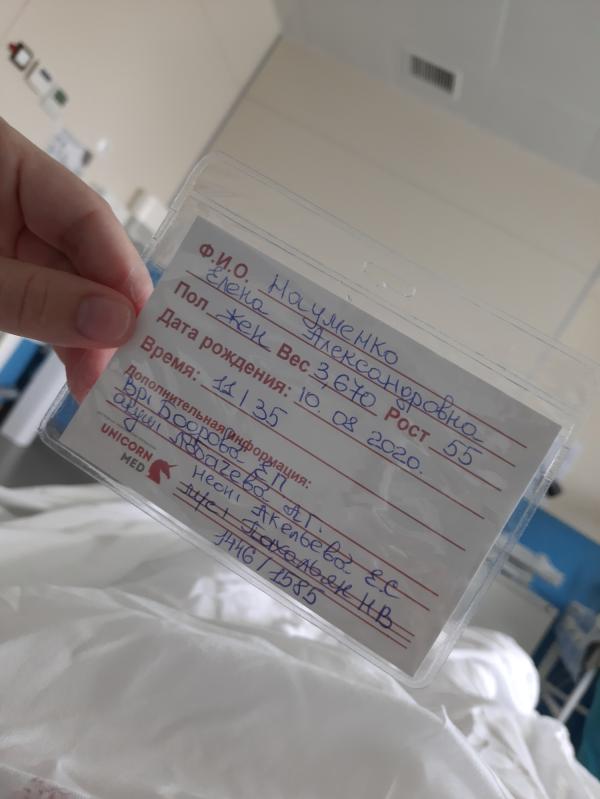 Ф.И.О. Науменко
Елена Александровна
Пол жен Вес 3,670 Рост 55
Дата рождения: 10.08 2020.
Время: 11/35
Дополнительная информация:
Вр: Боброва Е.П
акуш Л Д.Г.
Неон: Акельева Е.С
Н В
1446/1585
UNICORN
MED